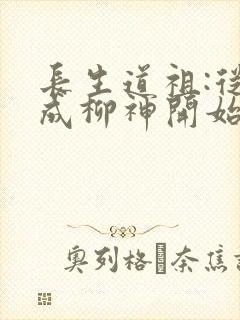 長生道祖:從
成柳神開始
奧列格 奈焦